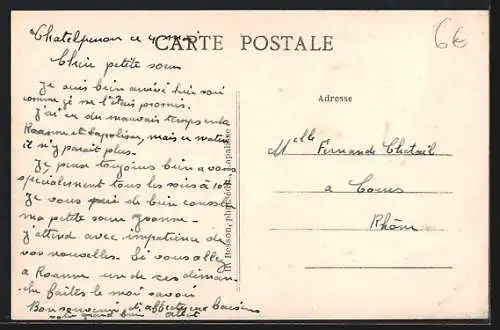 Chatelperron ce 4 mai
CARTE POSTALE
6€
Chère petite sœur
Je suis bien arrivé hier soir
comme je me l'étais promis.
J'ai eu du mauvais temps entre
Roanne et Lapalisse, mais ce matin
il n'y parait plus.
Je pense toujours bien a vous
spécialement tous les soirs à 10h
Je vous prie de bien consoler
ma petite sœur Yvonne.
J'attend avec impatience de
vos nouvelles. Si vous allez
a Roanne un de ces diman
che faites le moi savoir
Bon souvenir et affectueux baisers
votre grand
B. Besson, phot.-édit., Lapalisse
Adresse
Melle Fernande Chetail
a Cours
Rhône